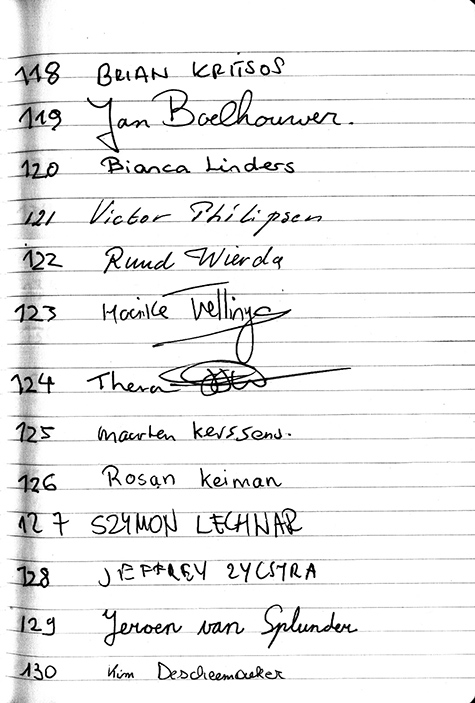 118 BRIAN KRITSOS
119 Jan Boelhouwer.
120 Bianca Linders
121 Victor Philipsen
122 Ruud Wierda
123 Marike Wellinga
124 Thera
125 Maarten Kerssens.
126 Rosan Keiman
127 SZYMON LECHNAR
128 JEFFREY ZYLSTRA
129 Jeroen van Splunder
130 Kim Descheemaeker